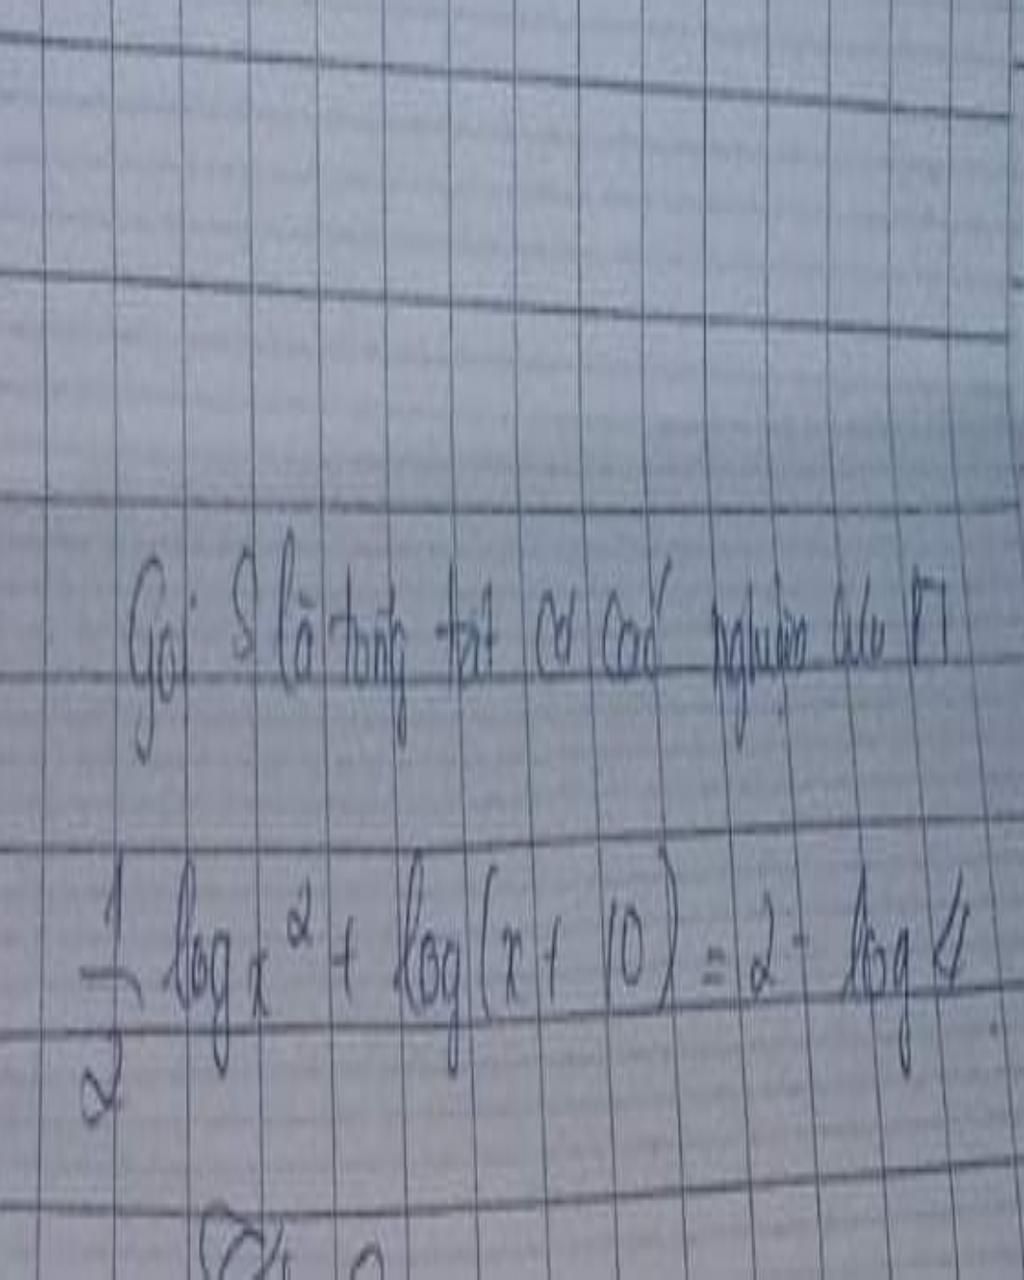 Gọi S là tổng tất cả các nghiệm của PT
1/2 log x² + log(x + 10) = 2 - log 4